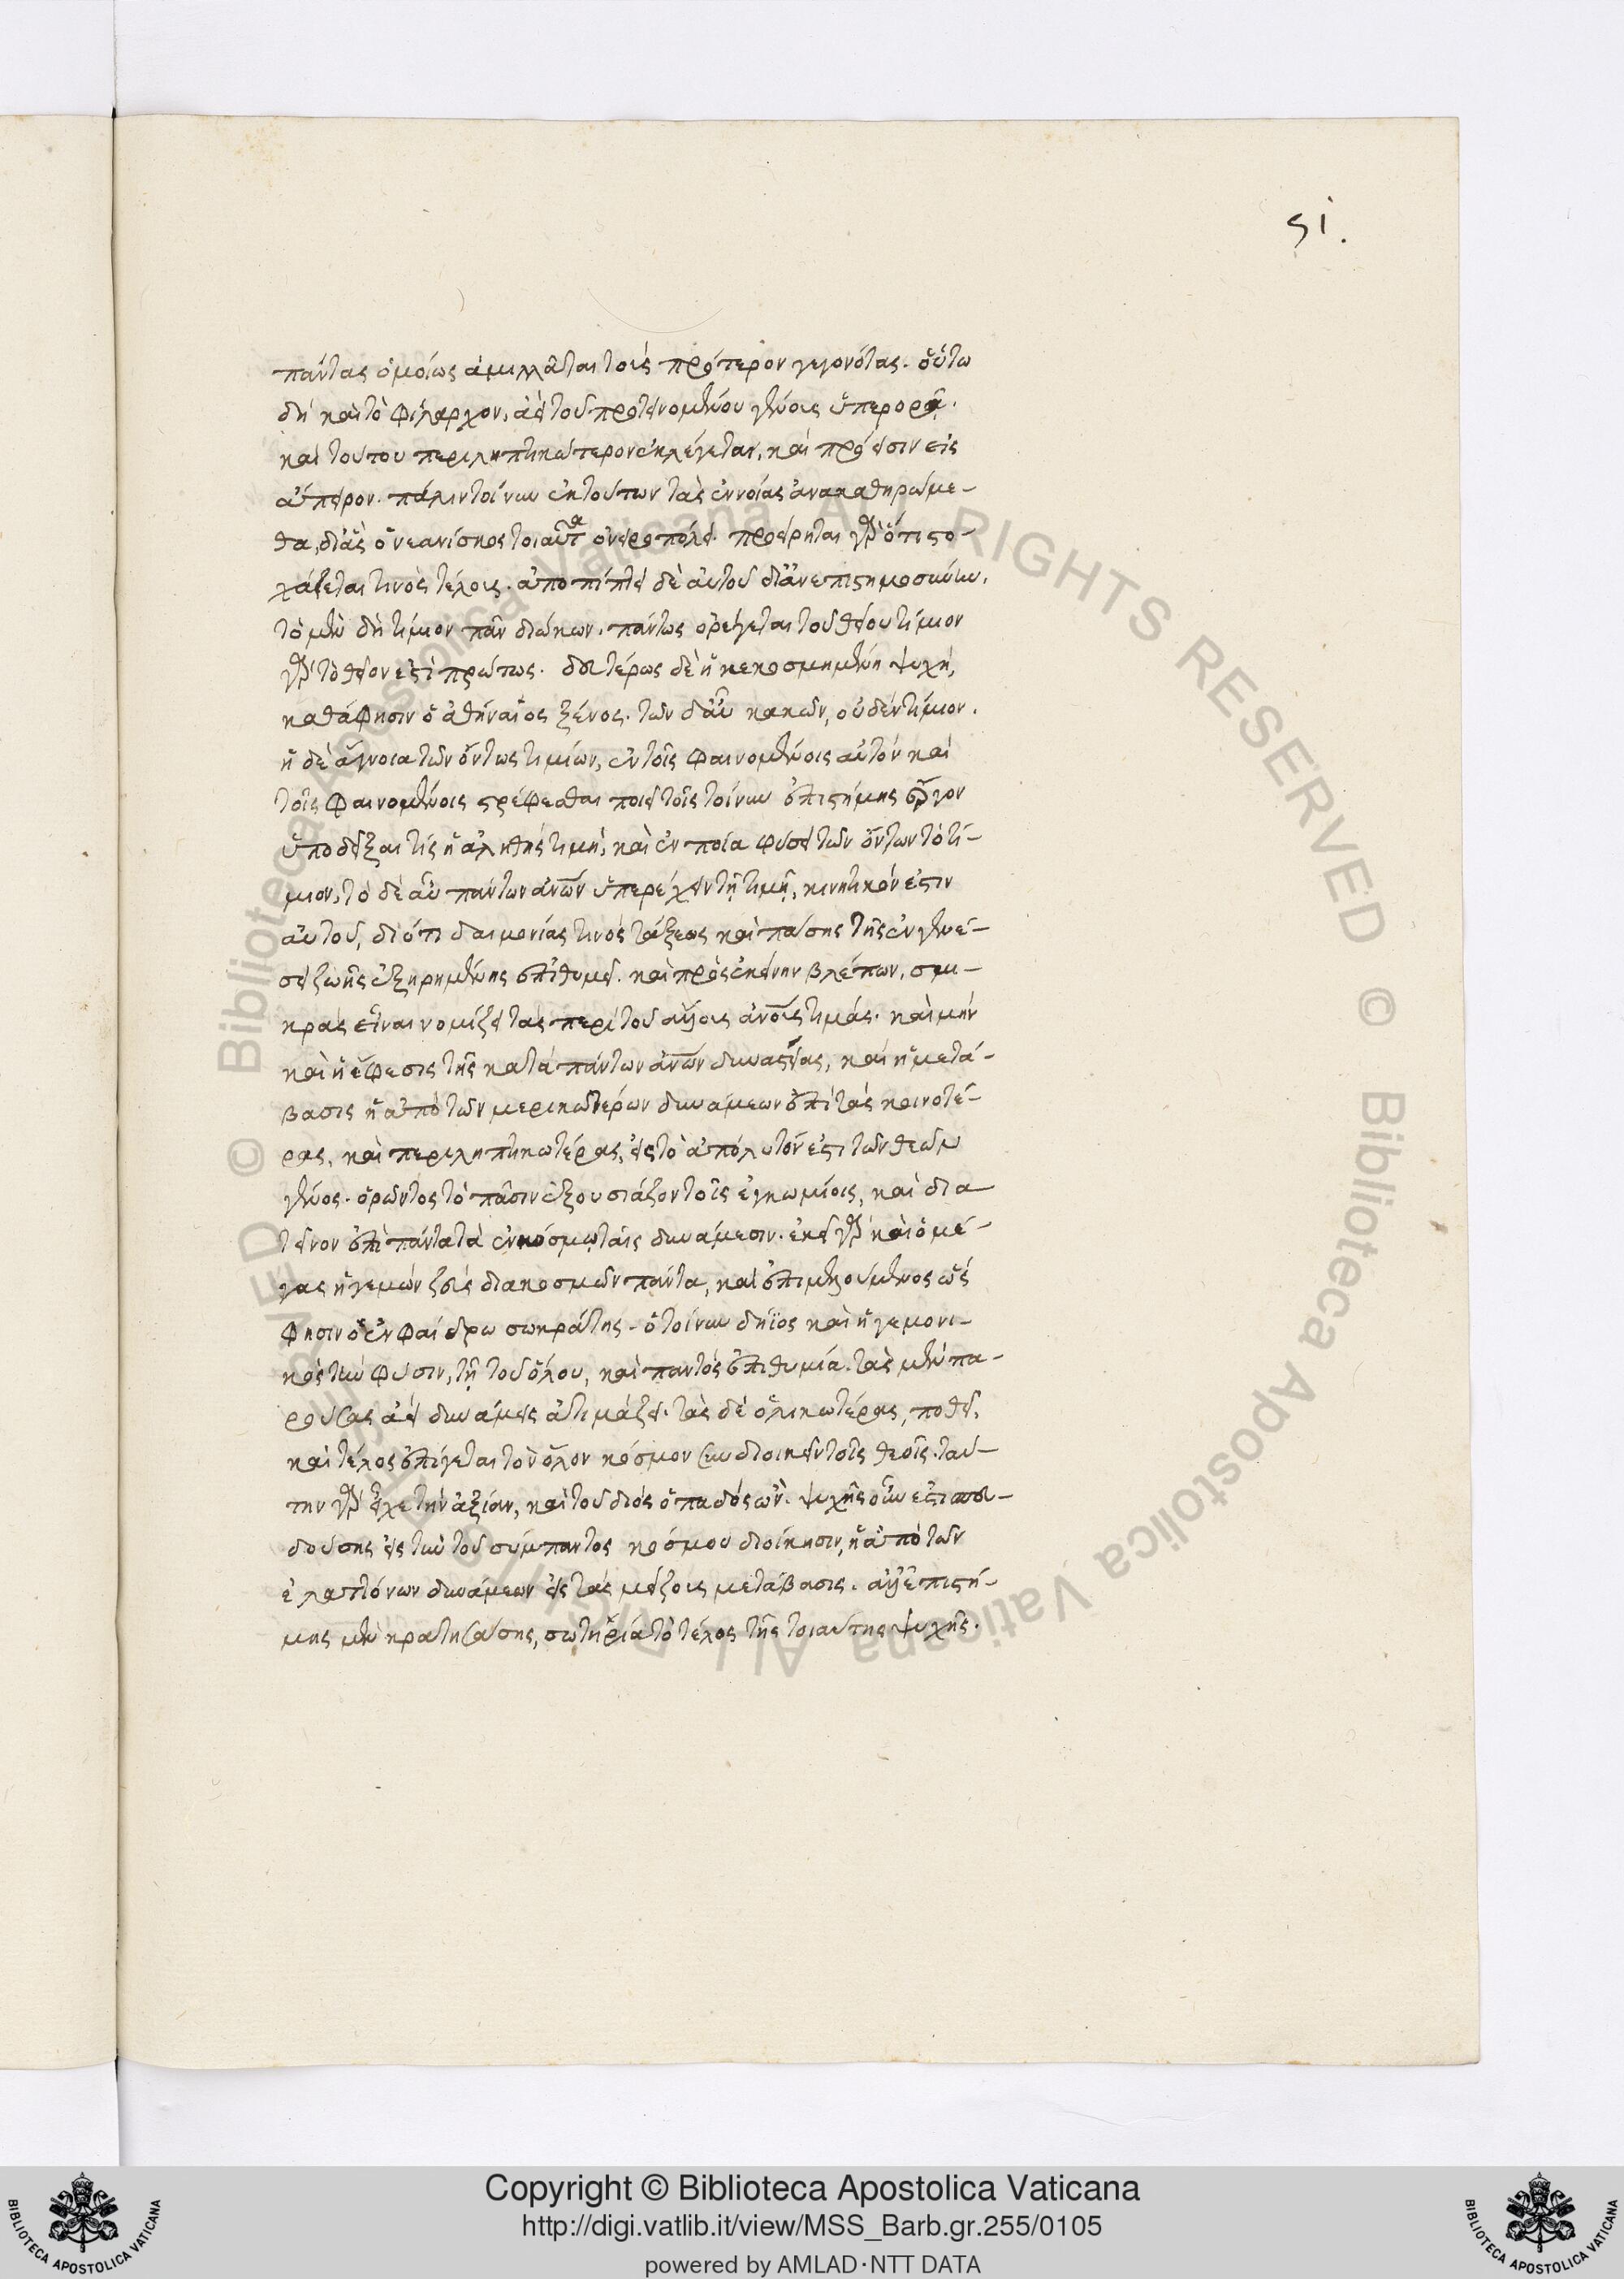 51.
πάντας ὁμοίως ἁμιλλᾶται τοὺς πρότερον γεγονότας. οὕτω
δὴ καὶ τὸ φίλαρχον, ἀεὶ τοῦ προτεινομένου γένους ὑπερορᾷ.
καὶ τούτου περιληπτικώτερον ἐκλέγεται, καὶ πρόεισιν εἰς
ἄπειρον. πάλιν τοίνυν ἐκ τούτων τὰς ἐννοίας ἀνακαθηρώμε-
θα, δι' ἃς ὁ νεανίσκος τοιαῦτα ὀνειροπολεῖ. προείρηται γὰρ ὅτι στο-
χάζεται τινὸς τέλους. ἀποπίπτει δὲ αὐτοῦ δι' ἀνεπιστημοσύνην.
τὸ μὲν δὴ τίμιον πᾶν διώκων. πάντως ὀρέγεται τοῦ θείου τίμιον
γὰρ τὸ θεῖον ἐστὶ πρώτως. δευτέρως δὲ ἡ κεκοσμημένη ψυχή,
καθά φησιν ὁ ἀθηναῖος ξένος. τῶν δ' αὖ κακῶν, οὐδὲν τίμιον.
ἡ δὲ ἄγνοια τῶν ὄντως τιμίων, ἐν τοῖς φαινομένοις αὐτὸν καὶ
τοῖς φαινομένοις στρέφεσθαι ποιεῖ τοῖς τοίνυν ἐπιστήμης ἔργον
ὑποδεῖξαι τίς ἡ ἀληθὴς τιμή, καὶ ἐν ποία φύσει τῶν ὄντων τὸ τί-
μιον, τὸ δὲ αὖ πάντων ἀνων ὑπερέχειν τῇ τιμῇ, κινητικόν ἐστιν
αὐτοῦ, διότι δαιμονίας τινὸς τάξεως καὶ πάσης τῆς ἐν γενέ-
σει ζωῆς ἐξηρημένης ἐπιθυμεῖ. καὶ πρὸς ἐκείνην βλέπων, σμι-
κρὰς εἶναι νομίζει τὰς περὶ τοὺς ἄλλους ἀνους τιμάς. καὶ μὴν
καὶ ἡ ἔφεσις τῆς κατὰ πάντων ἀνων δυναστείας, καὶ ἡ μετά-
βασις ἡ ἀπὸ τῶν μερικωτέρων δυνάμεων ἐπὶ τὰς κοινοτέ-
ρας, καὶ περιληπτικωτέρας, εἰς τὸ ἀπόλυτόν ἐστι τῶν θεῶν
γένος. ὁρῶντος τὸ πᾶσιν ἐξουσιάζον τοῖς ἐγκωμίοις, καὶ δια
τεῖνον ἐπὶ πάντα τὰ ἐν κόσμω ταῖς δυνάμεσιν. ἐκεῖ γὰρ καὶ ὁ μέ-
γας ἡγεμὼν ζεὺς διακοσμῶν πάντα, καὶ ἐπιμελούμενος ὥς
φησιν ὁ ἐν φαίδρω σωκράτης. ὁ τοίνυν δήϊος καὶ ἡγεμονι-
κὸς τὴν φύσιν, τῇ τοῦ ὅλου, καὶ παντὸς ἐπιθυμία. τὰς μὲν πα-
ρούσας ἀεὶ δυνάμεις ἀτιμάζει. τὰς δὲ ὁλικωτέρας, ποθεῖ.
καὶ τέλος ἐπείγεται τὸν ὅλον κόσμον συνδιοικεῖν τοῖς θεοῖς. ταύ-
την γὰρ ἔχει τὴν ἀξίαν, καὶ τοῦ διὸς ὀπαδὸς ὤν. ψυχῆς οὖν ἐστι σπευ-
δούσης εἰς τὴν τοῦ σύμπαντος κόσμου διοίκησιν, ἡ ἀπὸ τῶν
ἐλαττόνων δυνάμεων εἰς τὰς μείζους μετάβασις. ἀλλ' ἐπιστή-
μης μὲν κρατησάσης, σωτηρία τὸ τέλος τῆς τοιαύτης ψυχῆς.
© Biblioteca Apostolica Vaticana ALL RIGHTS RESERVED © Biblioteca Apostolica Vaticana ALL RIGHTS RESERVED
BIBLIOTECA APOSTOLICA VATICANA
Copyright © Biblioteca Apostolica Vaticana
http://digi.vatlib.it/view/MSS_Barb.gr.255/0105
powered by AMLAD·NTT DATA
BIBLIOTECA APOSTOLICA VATICANA